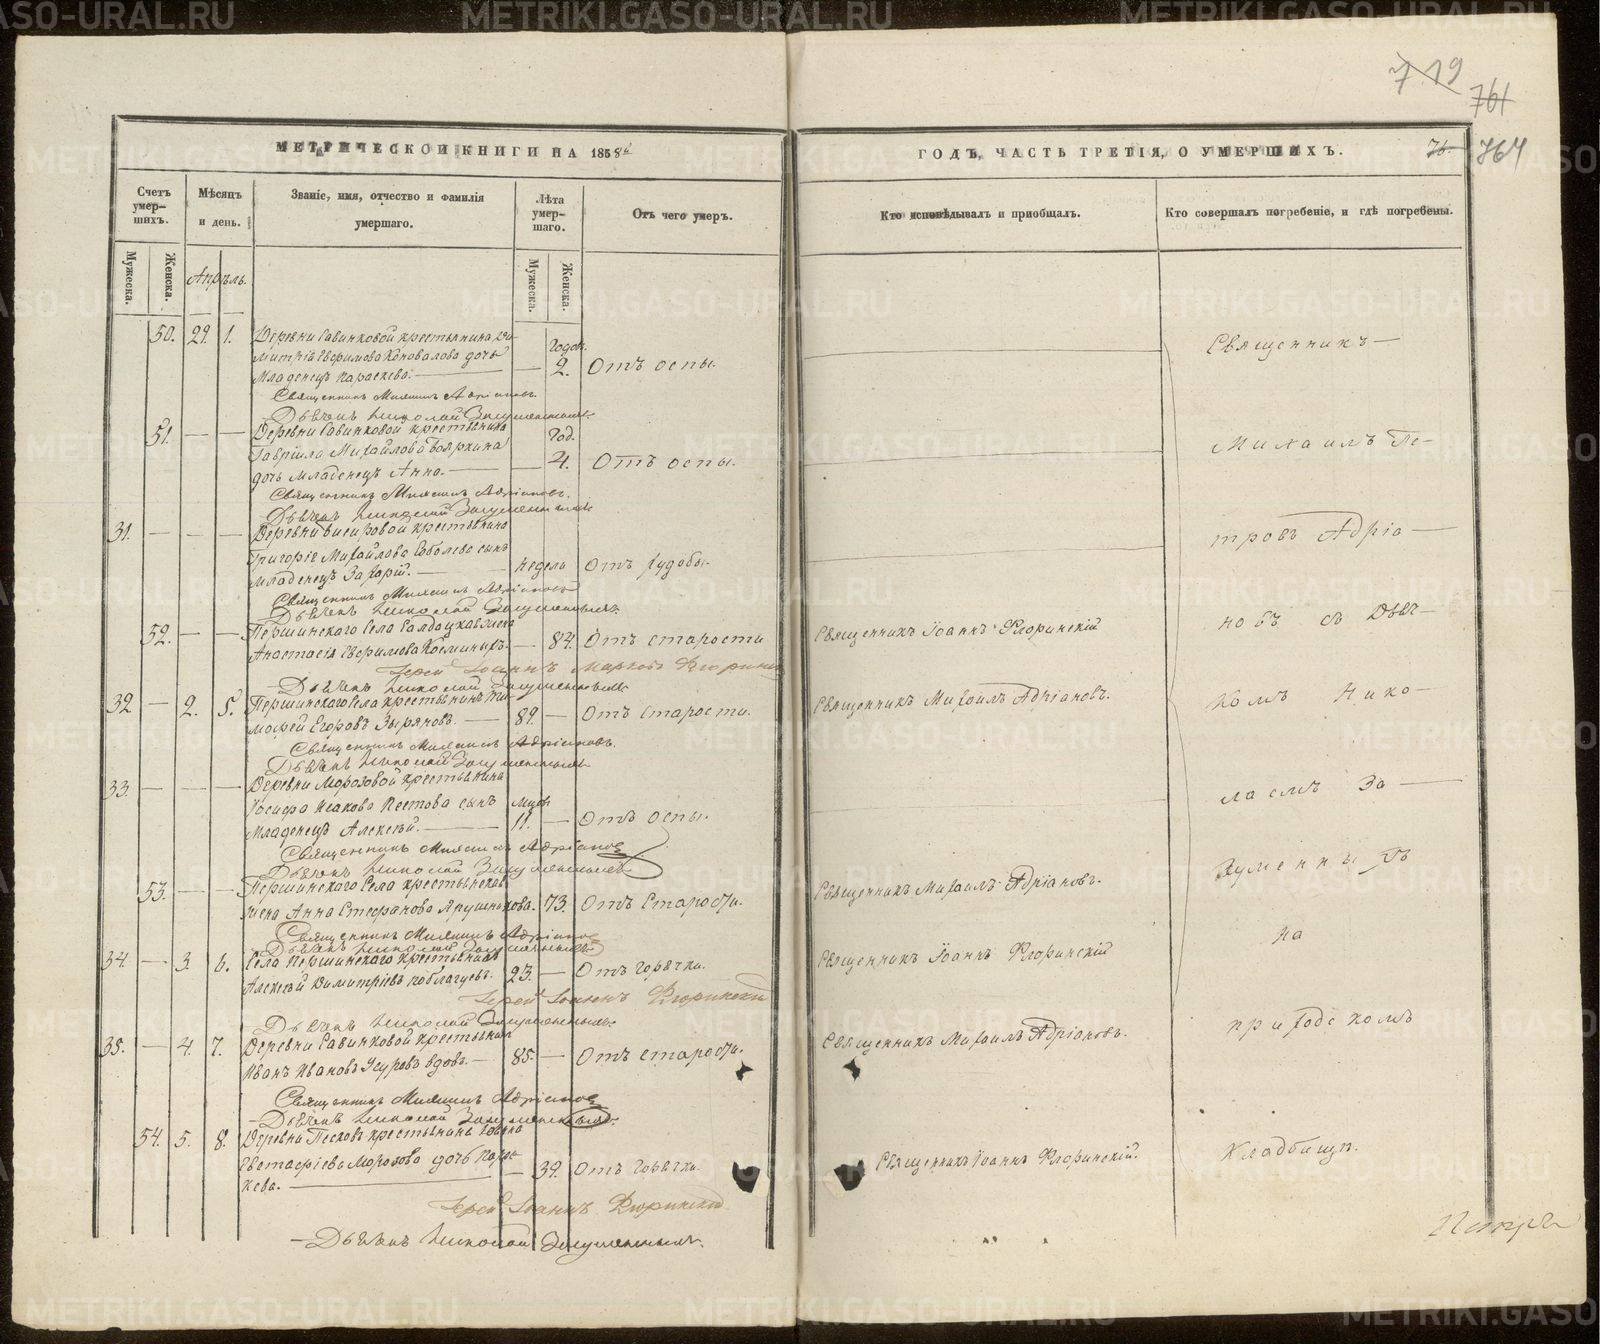 7 19
761
МЕТРИЧЕСКОЙ КНИГИ НА 1858й
ГОДЪ, ЧАСТЬ ТРЕТІЯ, О УМЕРШИХЪ.
76.
764
Счетъ умер-шихъ.
Мѣсяцъ и день.
Званіе, имя, отчество и фамилія умершаго.
Лѣта умер-шаго.
Отъ чего умеръ.
Кто исповѣдывалъ и приобщалъ.
Кто совершалъ погребеніе, и гдѣ погребены.
Мужеска.
Женска.
Апрѣль.
Мужеска.
Женска.
50. 29. 1. Деревни Савинковой крестьянина Ди-
митрія Евфимова Коновалова дочь
Младенецъ Параскева. — Годов. 2. Отъ оспы.
Священникъ Михаилъ Адріановъ.
Дьячекъ Николай Загуменныхъ.
51. — — Деревни Савинковой крестьянина
Гавріила Михайлова Бояркина
дочь младенецъ Анна. — Год. 4. Отъ оспы.
Священникъ Михаилъ Адріановъ.
Дьячекъ Николай Загуменныхъ.
31. — — — Деревни крестьянина
Григорія Михайлова Соболева сынъ
Младенецъ Захарій. — неделя Отъ худобы.
Священникъ Михаилъ Адріановъ
Дьячекъ Николай Загуменныхъ.
52. — — Першинскаго Села Солдатская жена
Анастасія Евфимова Косминыхъ. — 84. Отъ старости Священникъ Іоаннъ Флоринскій
Іерей Іоаннъ Марковъ Флоринскій
Дьячекъ Николай Загуменныхъ
32 — 2. 5. Першинскаго Села крестьянинъ Ти-
мофей Егоровъ Зыряновъ. — 89. — Отъ старости. Священникъ Михаилъ Адріановъ.
Священникъ Михаилъ Адріановъ.
Дьячекъ Николай Загуменныхъ
33. — — — Деревни Морозовой крестьянина
Іосифа Исакова Пестова сынъ
Младенецъ Алексѣй. — 11. — Отъ оспы.
Священникъ Михаилъ Адріановъ
Дьячекъ Николай Загуменныхъ.
53. — — Першинскаго Села крестьянская
жена Анна Стефанова Ярушникова. 73. Отъ Старости. Священникъ Михаилъ Адріановъ.
Священникъ Михаилъ Адріановъ
Дьячекъ Николай Загуменныхъ
34. — 3. 6. Села Першинскаго крестьянинъ
Алексѣй Димитріевъ 23. — Отъ горячки. Священникъ Іоаннъ Флоринскій
Іерей Іоаннъ Флоринскій
Дьячекъ Николай Загуменныхъ
35. — 4. 7. Деревни Савинковой крестьянинъ
Иванъ Ивановъ вдовъ. — 85. — Отъ старости. Священникъ Михаилъ Адріановъ.
Священникъ Михаилъ Адріановъ
Дьячекъ Николай Загуменныхъ.
54. 5. 8. Деревни крестьянина Іоанна
Евстафіева Морозова дочь Парас-
кева. — 39. Отъ горячки. Священникъ Іоаннъ Флоринскій.
Іерей Іоаннъ Флоринскій
Дьячекъ Николай Загуменныхъ.
Священникъ —
Михаилъ Пе-
тровъ Адріа —
новъ съ Дья-
комъ Нико-
лаемъ За —
гуменныхъ
На
приходскомъ
Кладбищѣ.
METRIKI.GASO-URAL.RU